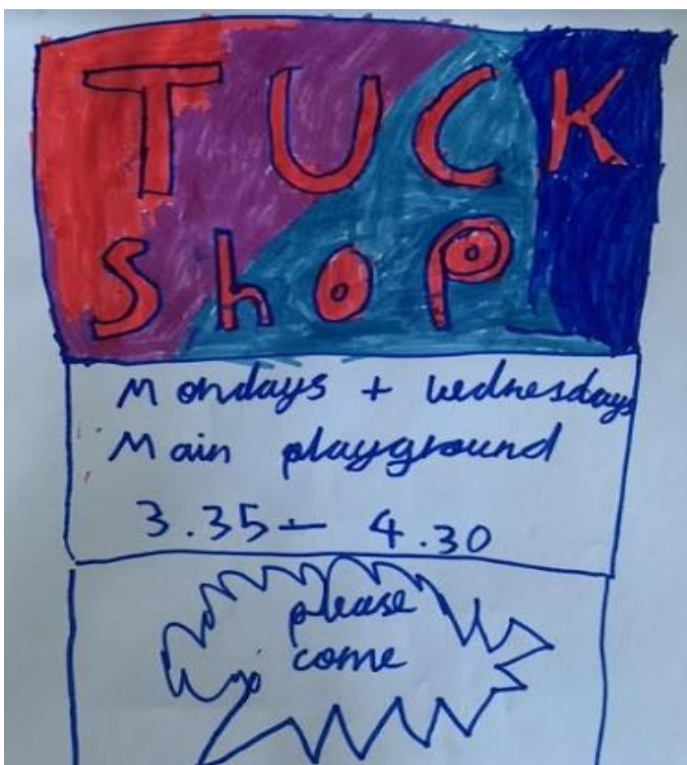 TUCK
ShoP
Mondays + wednesdays
Main playground
3.35 - 4.30
please
come